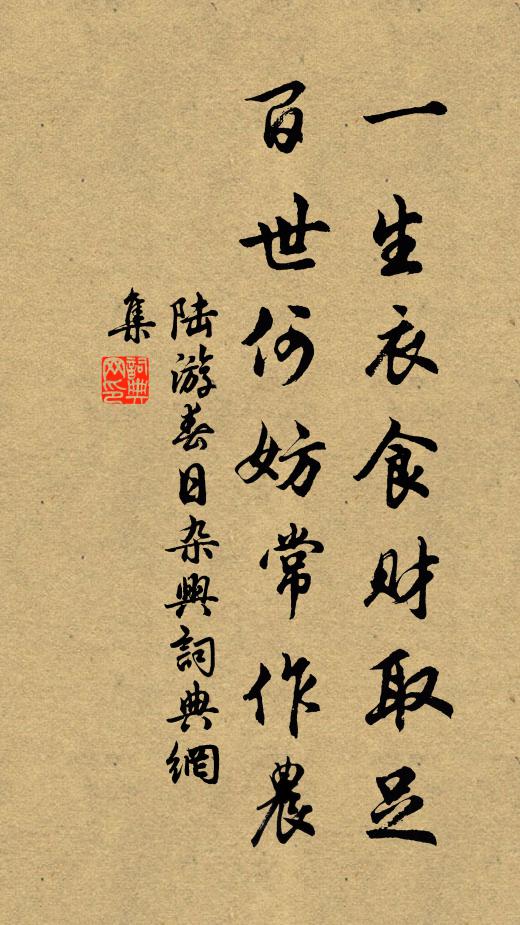 一生衣食财取足
百世何妨常作農
陆游春日杂興詞典網
集
詞典网印